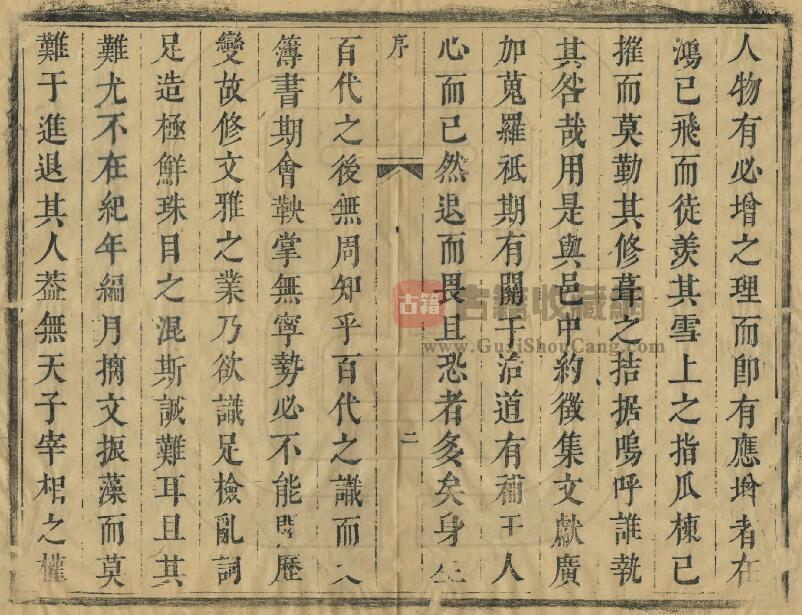 人物有必增之理而卽有應增者在
鴻已飛而徒羨其雪上之指瓜棟已
摧而莫勤其修葺之拮据嗚呼誰執
其咎哉用是與邑中約徵集文獻廣
加蒐羅祗期有關于治道有補于人
心而已然退而畏且恐者多矣身生
序 二
百代之後無周知乎百代之識而
簿書期會鞅掌無寧勢必不能閱歷
變故修文雅之業乃欲識足檢亂詞
足造極鮮珠目之混斯誠難耳且其
難尤不在紀年編月摛文振藻而莫
難于進退其人葢無天子宰相之權
古籍
古籍收藏網
www.GujiShouCang.com